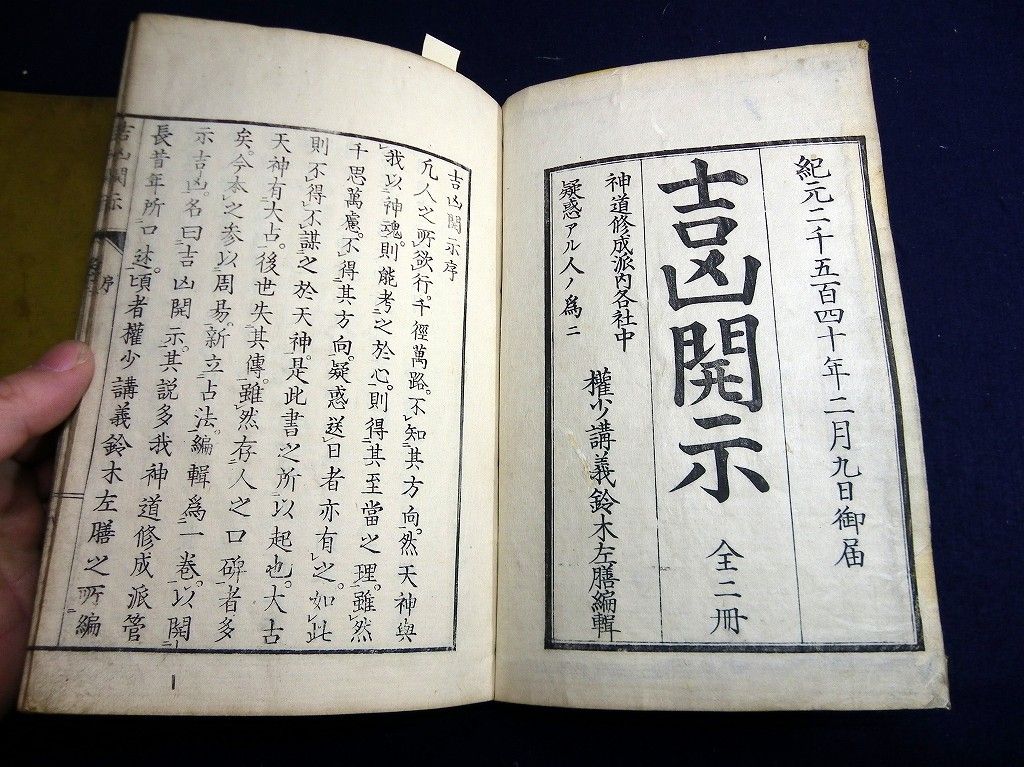 紀元二千五百四十年二月九日御届
吉凶開示 全二冊
神道修成派内各社中
疑惑アル人ノ爲ニ
權少講義鈴木左膳編輯
吉凶開示序
凢人之所欲行。千徑萬路。不知其方向。然天神與
我以神魂。則能考之於心。則得其至當之理。雖然
千思萬慮。不得其方向。疑惑送日者亦有之。如此
則不得不謀之於天神。是此書之所以起也。大古
天神有大占。後世失其傳。雖然存人之口碑者多
矣。今本之参以周易。新立占法。編輯爲一卷。以開
示吉凶。名曰吉凶開示。其説多我神道修成派管
長昔年所口述。頃者權少講義鈴木左膳之所編
吉凶開示 序